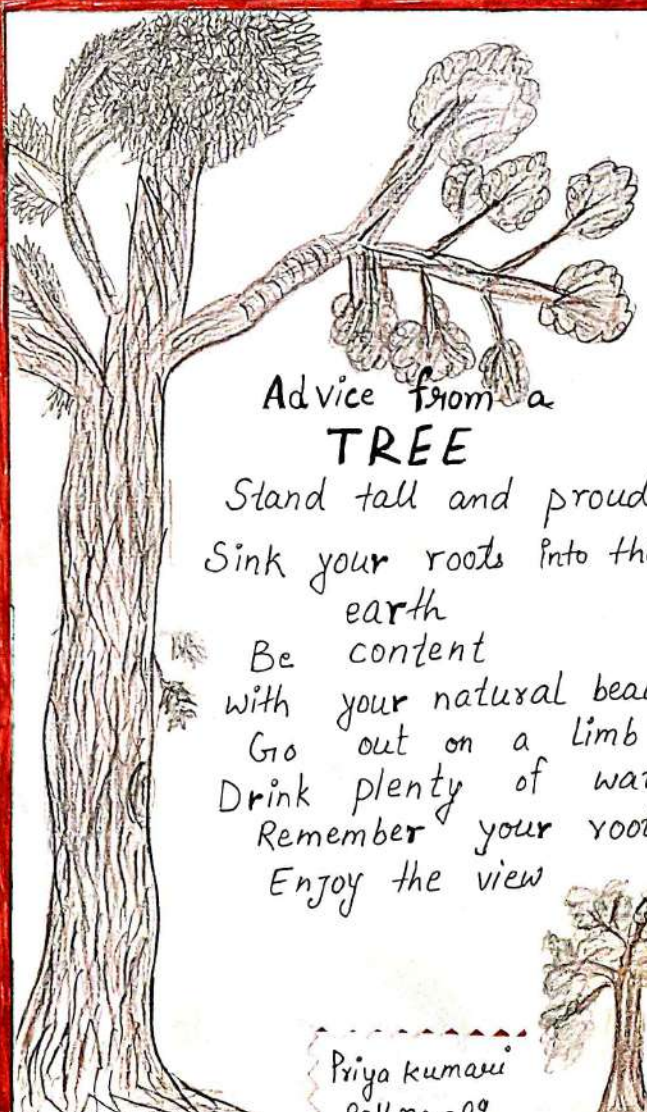 Advice from a
TREE
Stand tall and proud
Sink your roots into the
earth
Be content
with your natural beau
Go out on a limb
Drink plenty of wat
Remember your root
Enjoy the view
Priya Kumari